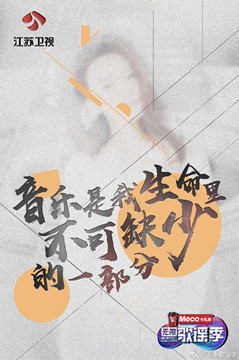 江苏卫视
音乐是我生命里
不可缺少
的一部分
Meco
无限
歌谣季